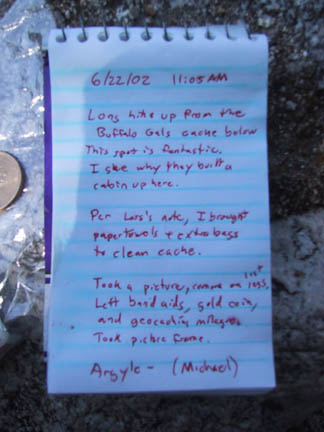 6/22/02 11:05 AM
Long hike up from the
Buffalo Gals cache below
This spot is fantastic.
I see why they built a
cabin up here.
Per Lars's note, I brought
papertowels + extra bags
to clean cache.
Took a picture, camera on last
Left bandaids, gold coin,
and geocaching
Took picture frame.
Argyle - (Michael)